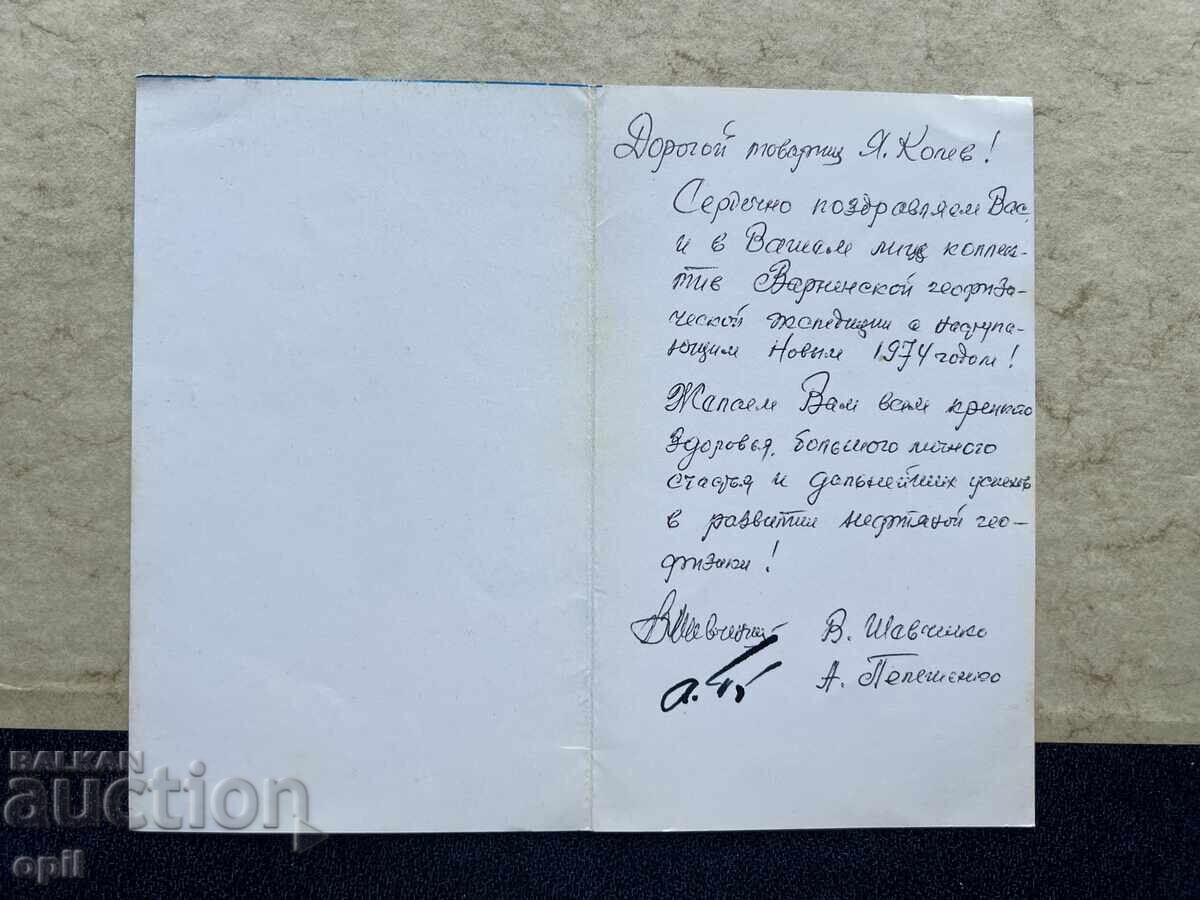 Дорогой товарищ Я. Колев!
Сердечно поздравляем Вас,
и в Вашем лице коллек-
тив Варненской геофизи-
ческой экспедиции с наступа-
ющим Новым 1974 годом!
Желаем Вам всем крепкого
здоровья, большого личного
счастья и дальнейших успехов
в развитии нефтяной гео-
физики!
В. Шевченко
А.
BALKAN
auction
opil